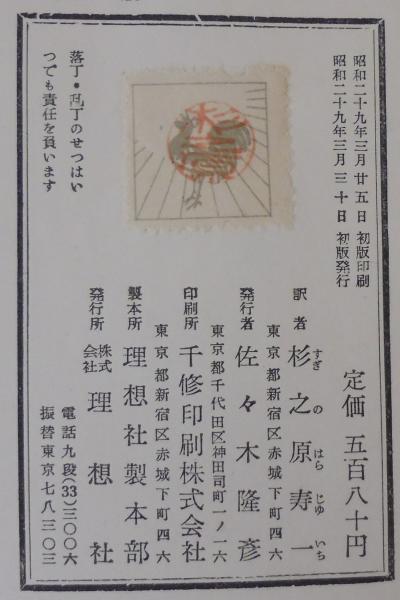 昭和二十九年三月廿五日 初版印刷
昭和二十九年三月三十日 初版発行
定価 五百八十円
訳者 杉之原寿一
すぎ の はら じゆ いち
東京都新宿区赤城下町四六
発行者 佐々木隆彦
東京都千代田区神田司町一ノ一六
印刷所 千修印刷株式会社
東京都新宿区赤城下町四六
製本所 理想社製本部
発行所 株式会社 理想社
電話九段(33)三〇〇六
振替東京七八三〇三
落丁・乱丁のせつはい
つでも責任を負います